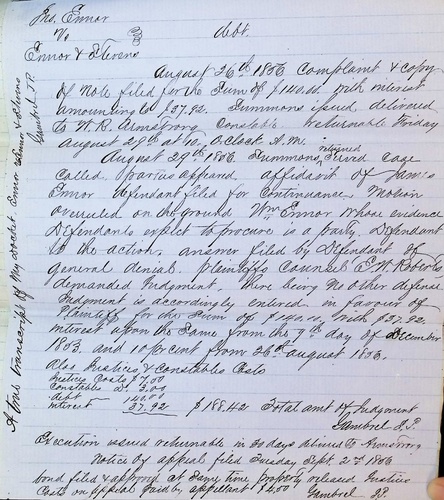 Jno. Ennor
vs. debt.
Ennor & Stevens
August 26th 1856 Complaint & copy
of Note filed for the Sum of $140.00 with interest
amounting to $37.92. Summons issued delivered
to W.R. Armstrong Constable returnable Friday
August 29th at 10. O clock A.M.
August 29th 1856 Summons, returned Served case
called. parties appeared affidavit of James
Ennor defendant filed for Continuance. Motion
overuled on the ground Wm Ennor whose evidence
Defendants expect to procure is a party, Defendant
to the action, answer filed by Defendant of
General denial. plaintiffs Counsel E.W. Roberts
demanded Judgment, there being no other defense
Judgment is accordingly entered in favour of
Plaintiff for the Sum of $140.00 with $37.92
interest upon the Same from the 9th day of December
1853. and 10 pr cent from 26th august 1856.
Also Justices & Constables Costs
Justices Costs $7.00
Constables Do. 3.00
debt 140.00
interest 37.92 $188.42 Total amt of Judgment
Gambrel J.P.
Execution issued returnable in 30 days delivered to Armstrong
Notice of appeal filed Tuesday Sept. 2nd 1856
bond filed & approved at Same time, property released Justices
Costs on appeal paid by appellant
Gambrel J.P.
A true transcript of my docket. Ennor vs Ennor & Stevens
Gambrel J.P.